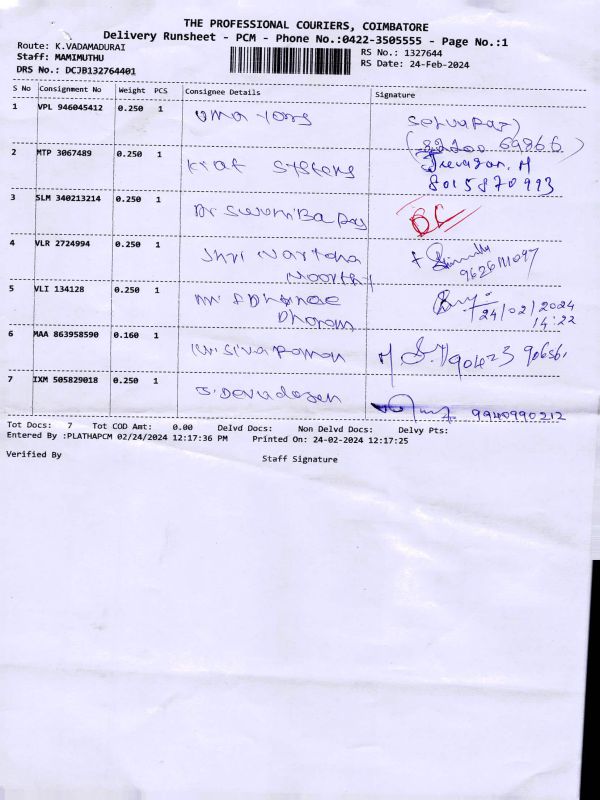 THE PROFESSIONAL COURIERS, COIMBATORE
Delivery Runsheet - PCM - Phone No.:0422-3505555 - Page No.:1
Route: K.VADAMADURAI
Staff: MAMIMUTHU
DRS No.: DCJB132764401
RS No.: 1327644
RS Date: 24-Feb-2024
S No Consignment No Weight PCS Consignee Details Signature
1 VPL 946045412 0.250 1 Selvaraj
2 MTP 3067489 0.250 1 Systems
8015870993
3 SLM 340213214 0.250 1 Dr
4 VLR 2724994 0.250 1 Shri
Moorthy 9626111097
5 VLI 134128 0.250 1 Mr
Dharam 24/02/2024
14:22
6 MAA 863958590 0.160 1 Mr. Sivaraman
7 IXM 505829018 0.250 1 S. Devadasan 9940990212
Tot Docs: 7 Tot COD Amt: 0.00 Delvd Docs: Non Delvd Docs: Delvy Pts:
Entered By :PLATHAPCM 02/24/2024 12:17:36 PM Printed On: 24-02-2024 12:17:25
Verified By Staff Signature